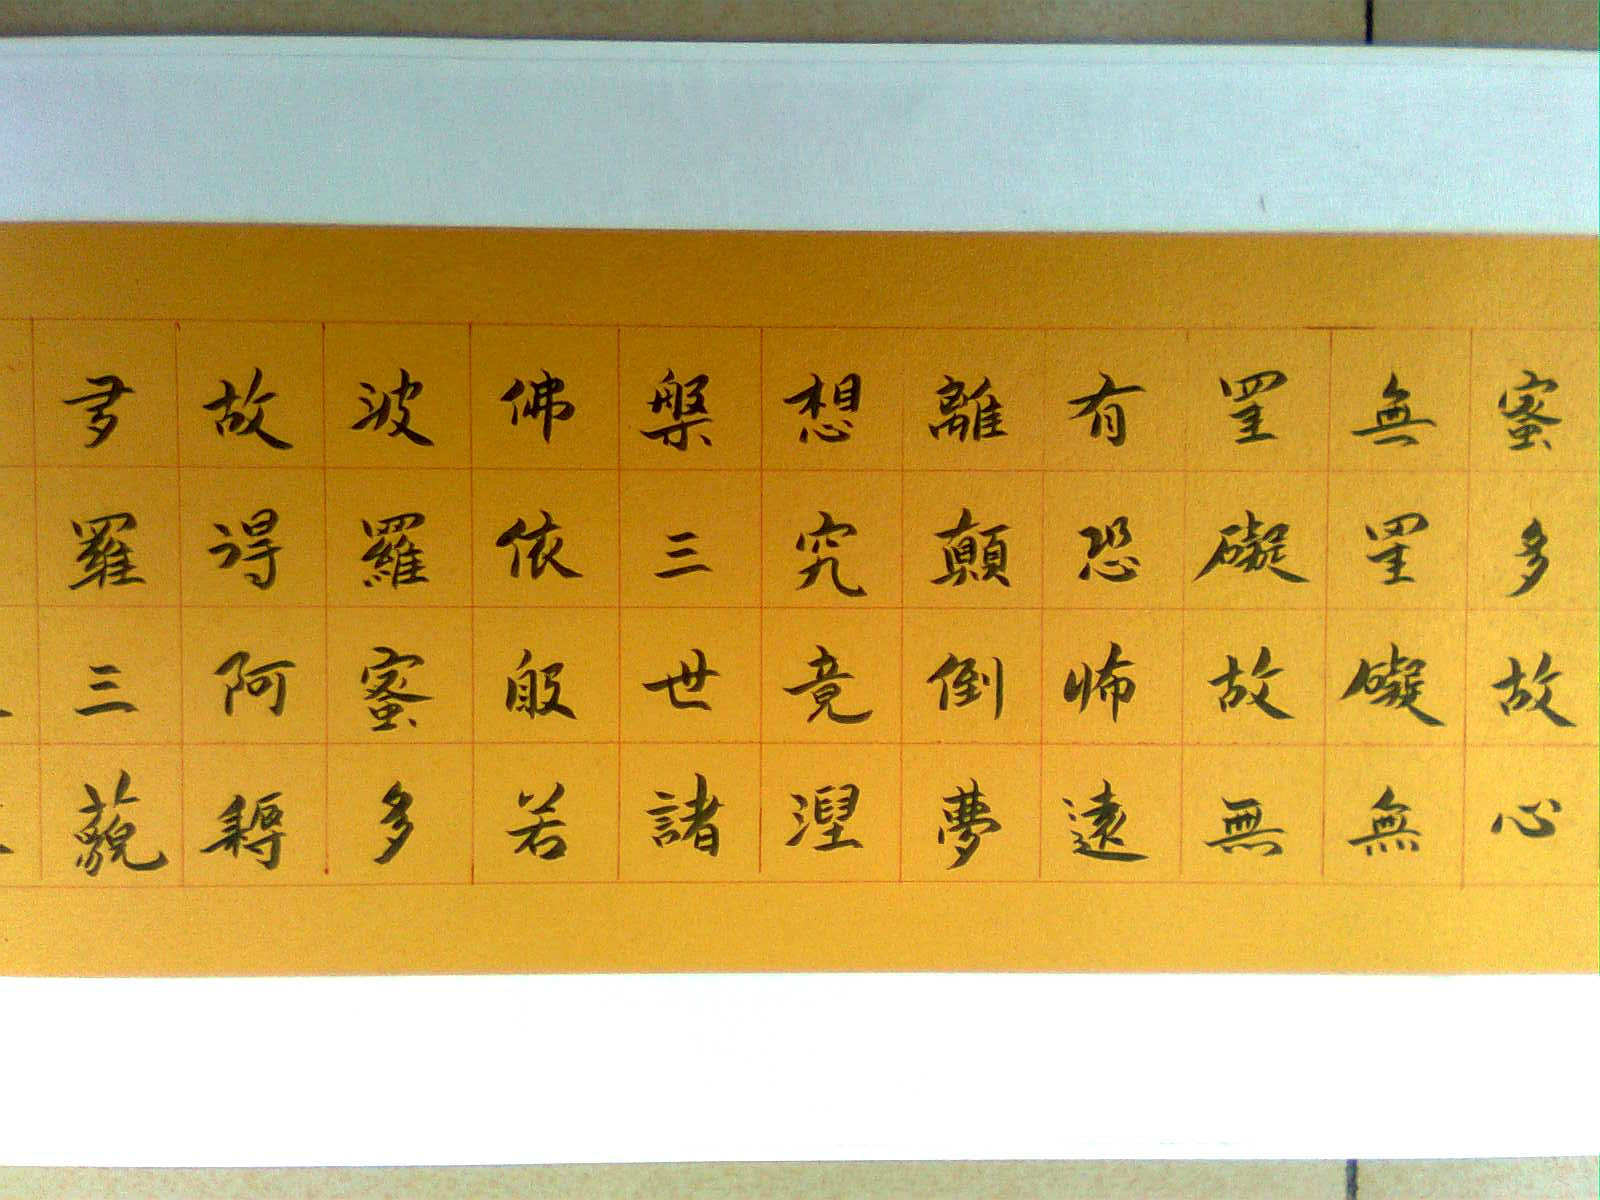 蜜多故心
無罣礙無
罣礙故無
有恐怖遠
離顛倒夢
想究竟涅
槃三世諸
佛依般若
波羅蜜多
故得阿耨
夛羅三藐